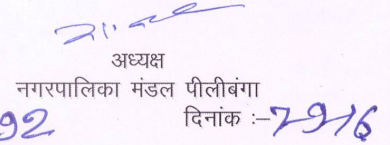 अध्यक्ष
नगरपालिका मंडल पीलीबंगा
92 दिनांक :-7-9-16